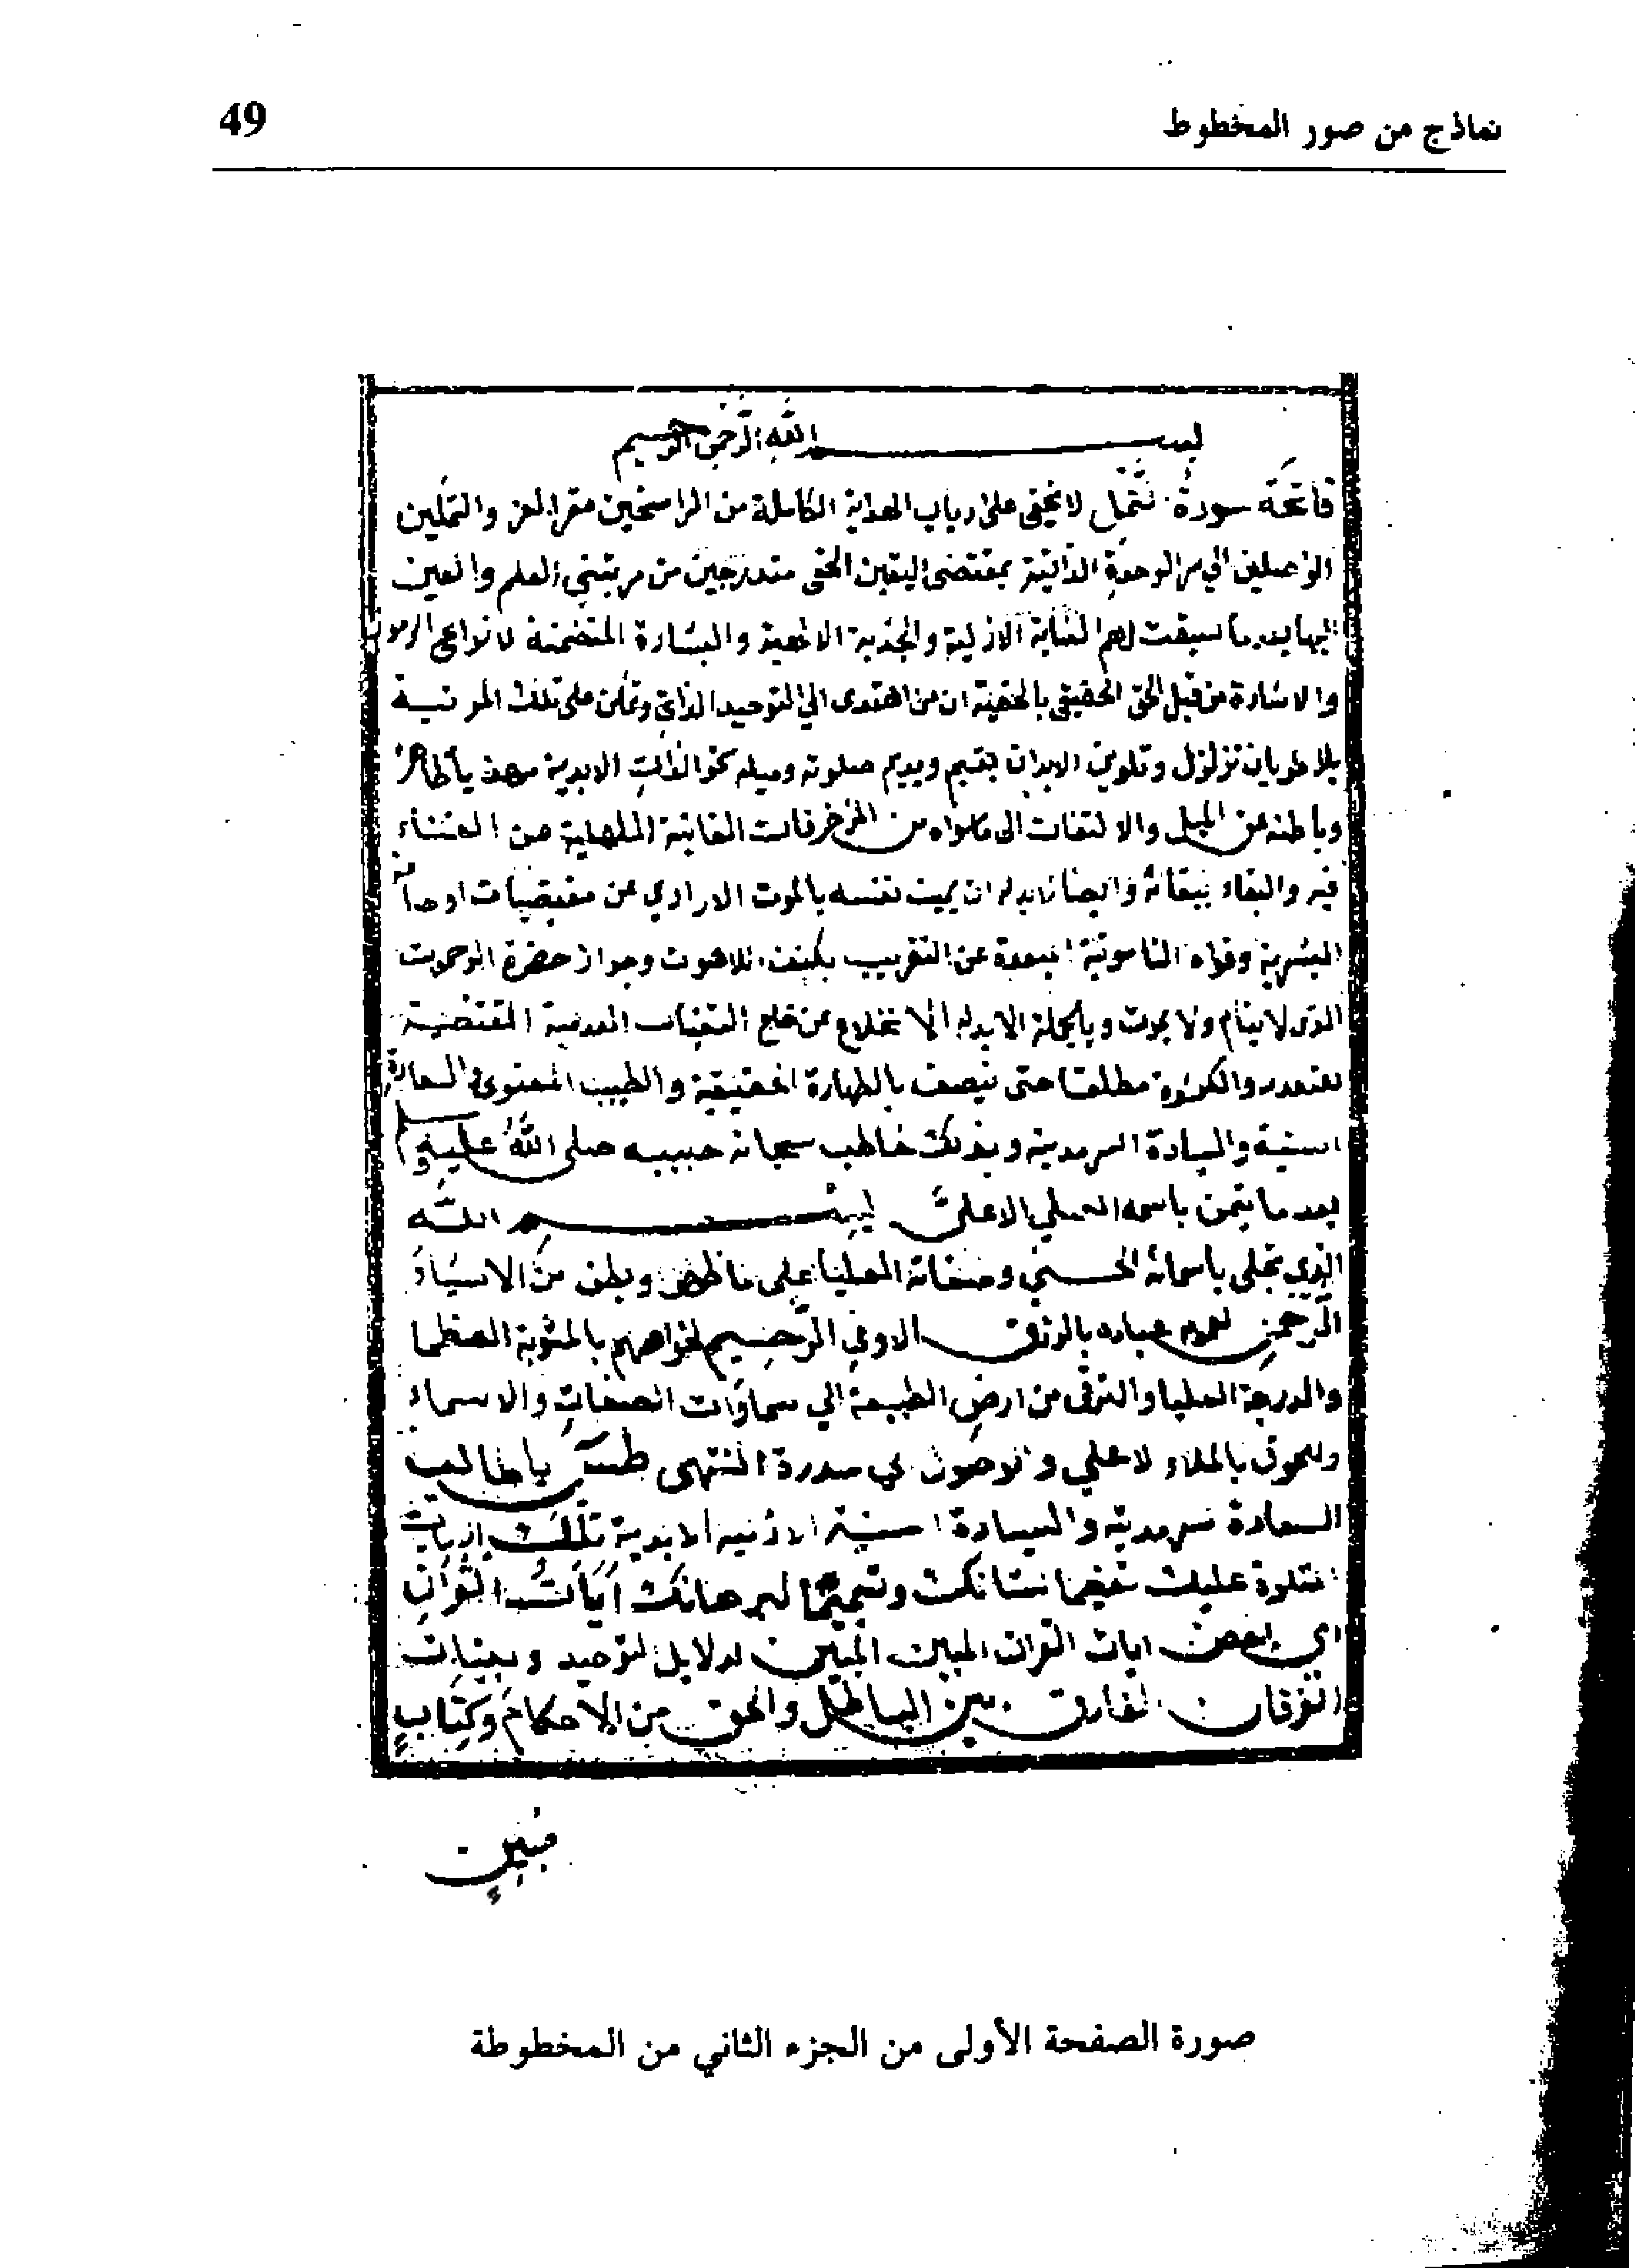 نماذج من صور المخطوط
49
بسم الله الرحمن الرحيم
فاتحة سورة النمل لا يخفى على ارباب الهداية الكاملة من الراسخين مقر العز والتمكين
الواصلين الى سر الوحدة الذاتية بمقتضى اليقين الحقى متدرجين من مرتبتي العلم والعين
اليها بعد ما سبقت لهم العناية الازلية والجذبة الالهية والبشارة المتضمنة لانواع الرموز
والاشارة من قبل الحق الحقيقي بالحقية ان من اهتدى الي التوحيد الذاتي وتمكن على تلك المرتبة
بلا طريان تزلزل وتلوين لابد ان يقيم ويديم صلوته وميله نحو الذات الابدية مهذبا ظاهره
وباطنه عن الميل والالتفات الى ما سواه من المزخرفات الفانية الملهية عن الفناء
فيه والبقاء ببقائه وايضا لابد له ان يميت نفسه بالموت الارادي عن مقتضيات اوصافه
البشرية وقواه الناسوتية المبعدة عن التقرب بكنف اللاهوت وجوار حضرة الرحموت
الذي لا ينام ولا يموت وبالجملة لابد له الانخلاع عن خلع التعينات العدمية المقتضية
للتعدد والكثرة مطلقا حتى يتصف بالطهارة الحقيقية والطيب المعنوي والسعادة
السنية والسيادة السرمدية وبذلك خاطب سبحانه حبيبه صلى الله عليه و
بعد ما تيمن باسمه العلي الاعلى بسم الله
الذي تجلى باسمائه الحسنى وصفاته العليا على ما ظهر وبطن من الاشياء
الرحمن لعموم عباده بالرزق الاوفى الرحيم لخواصهم بالمثوبة العظمى
والدرجة العليا والترقى من ارض الطبيعة الي سماوات الصفات والاسماء
واللحوق بالملاء الاعلي والوصول الي سدرة المنتهى طس يا طالب
السعادة السرمدية والسيادة السنية الازلية الابدية تلك الايات
المتلوة عليك تفخيما لشانك وتتميما لبرهانك آيات القرآن
اي بعض ايات القران المبين المبين لدلايل التوحيد وبينات
الفرقان الفارق بين الباطل والحق من الاحكام وكتاب
مبين
صورة الصفحة الأولى من الجزء الثاني من المخطوطة